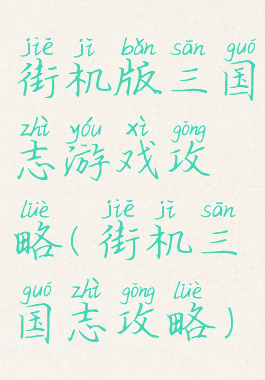 jiē jī bǎn sān guó
街机版三国
zhì yóu xì gōng
志游戏攻
lüè jiē jī sān
略(街机三
guó zhì gōng lüè
国志攻略)